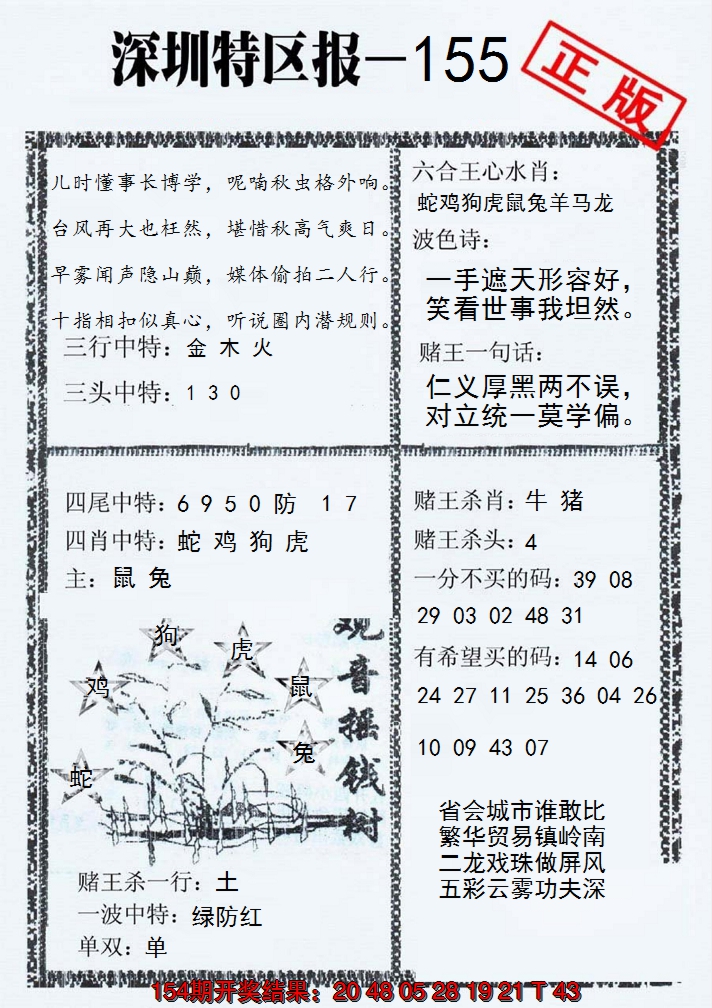 深圳特区报—155
正版
儿时懂事长博学，呢喃秋虫格外响。
台风再大也枉然，堪惜秋高气爽日。
早雾闻声隐山巅，媒体偷拍二人行。
十指相扣似真心，听说圈内潜规则。
三行中特：金 木 火
三头中特：1 3 0
六合王心水肖：
蛇鸡狗虎鼠兔羊马龙
波色诗：
一手遮天形容好，
笑看世事我坦然。
赌王一句话：
仁义厚黑两不误，
对立统一莫学偏。
四尾中特：6 9 5 0 防 1 7
四肖中特：蛇 鸡 狗 虎
主：鼠 兔
狗
虎
鸡
鼠
兔
蛇
观音摇钱树
赌王杀一行：土
一波中特：绿防红
单双：单
赌王杀肖：牛 猪
赌王杀头：4
一分不买的码：39 08
29 03 02 48 31
有希望买的码：14 06
24 27 11 25 36 04 26
10 09 43 07
省会城市谁敢比
繁华贸易镇岭南
二龙戏珠做屏风
五彩云雾功夫深
154期开奖结果：20 48 05 28 19 21 T 43